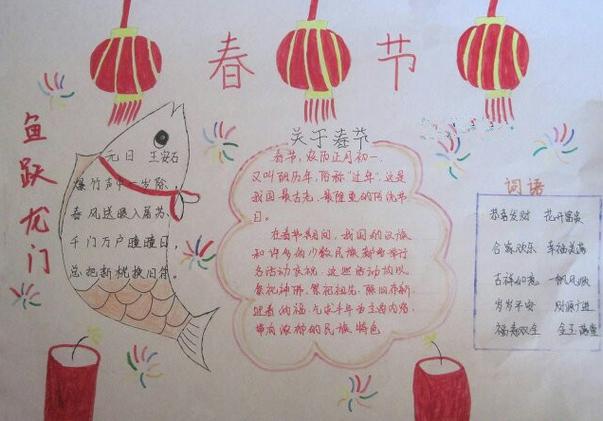 春节
鱼跃龙门
元日 王安石
爆竹声中一岁除,
春风送暖入屠苏,
千门万户瞳瞳日,
总把新桃换旧符。
关于春节
春节,农历正月初一,
又叫阴历年,俗称"过年",这是
我国最古老、最隆重的传统节
日。
在春节期间,我国的汉族
和许多的少数民族都要举行
各活动庆祝,这些活动均以
祭祀神佛、祭祀祖先、除旧布新、
迎春纳福、乞求丰年为主的内容,
带有浓郁的民族特色
词语
恭喜发财 花开富贵
合家欢乐 幸福美满
吉祥如意 一帆风顺
岁岁平安 财源广进
福寿双全 金玉满堂